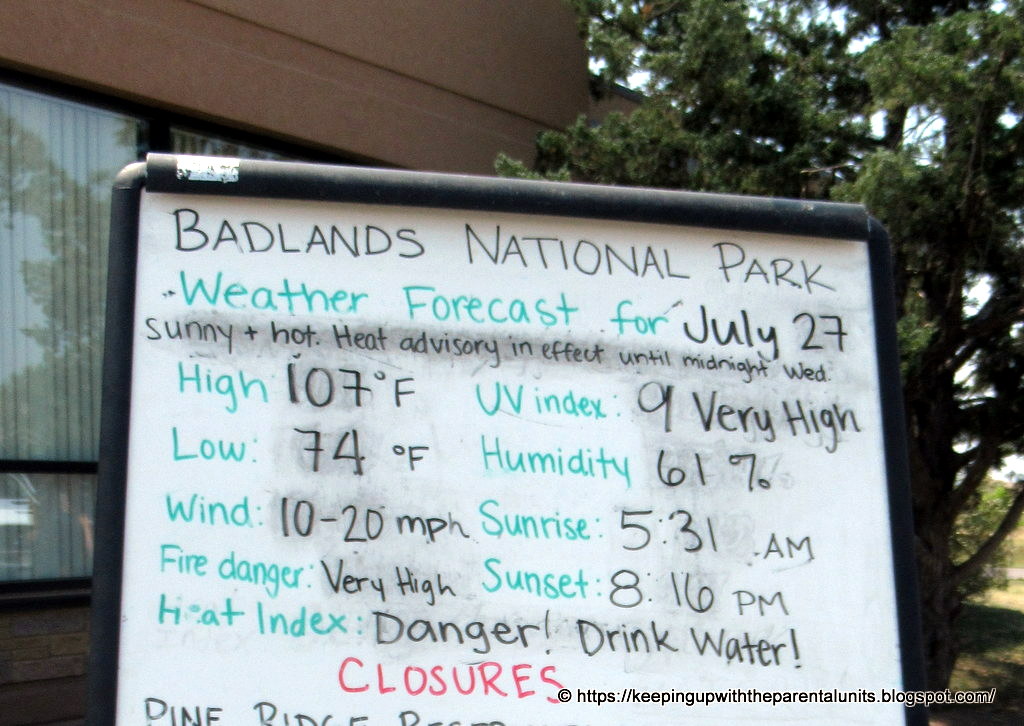 BADLANDS NATIONAL PARK
Weather Forecast for July 27
Sunny + hot. Heat advisory in effect until midnight Wed.
High 107°F UV index: 9 Very High
Low: 74 °F Humidity 61 %
Wind: 10-20 mph Sunrise: 5:31 AM
Fire danger: Very High Sunset: 8:16 PM
Heat Index: Danger! Drink Water!
CLOSURES
PINE RIDGE
© https://keepingupwiththeparentalunits.blogspot.com/